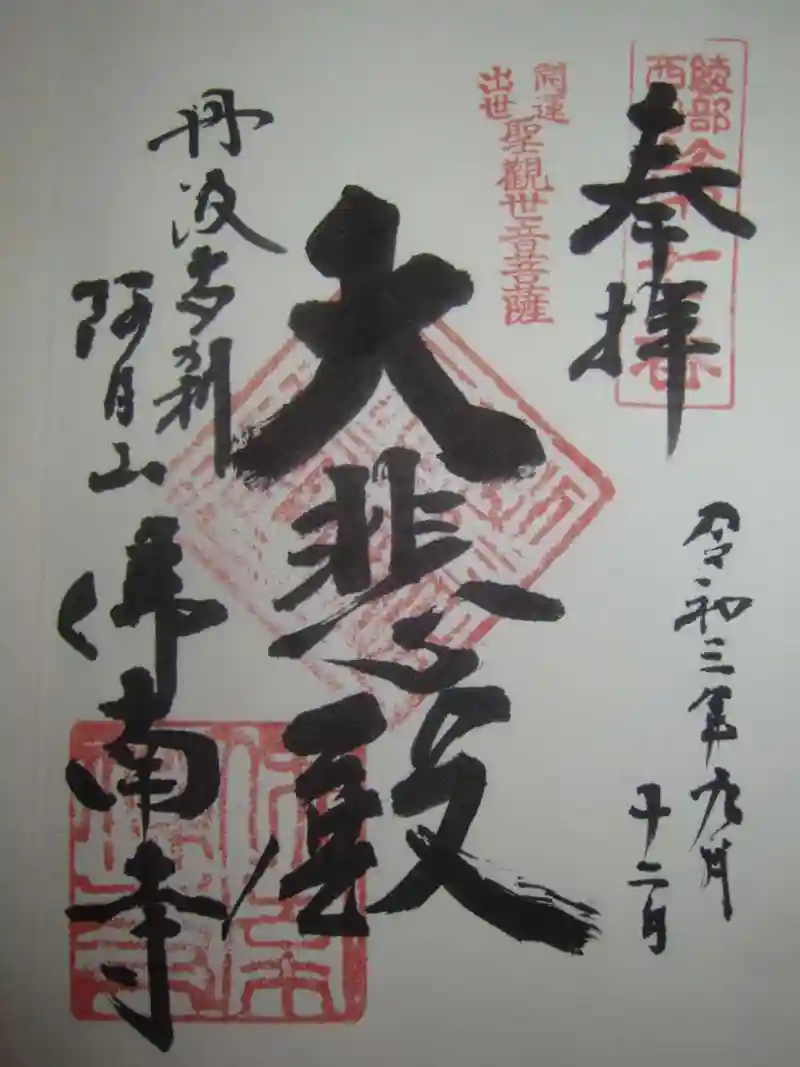 奉拝
綾部
令和三年九月
十二日
開運
出世
聖觀世音菩薩
大悲殿
丹波古刹
阿月山
佛南寺